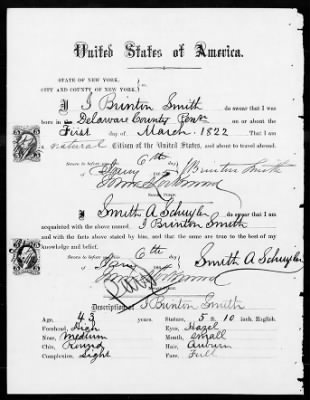 United States of America.
STATE OF NEW YORK,
CITY AND COUNTY OF NEW YORK,
I J Brinton Smith do swear that I was
born in Delaware County Penn on or about the
First day of March 1822 That I am
a natural Citizen of the United States, and about to travel abroad.
Sworn to before me this 6th day
J Brinton Smith
Notary Public
I Smith A Schuyler do swear that I am
acquainted with the above named J Brinton Smith
and with the facts above stated by him, and that the same are true to the best of my
knowledge and belief.
Sworn to before me this 6th day
Smith A Schuyler
Description of J Brinton Smith
Age, 43 years. Stature, 5 ft. 10 inch, English.
Forehead, High Eyes, Hazel
Nose, Medium Mouth, Small
Chin, Round Hair, Auburn
Complexion, Light Face, Full